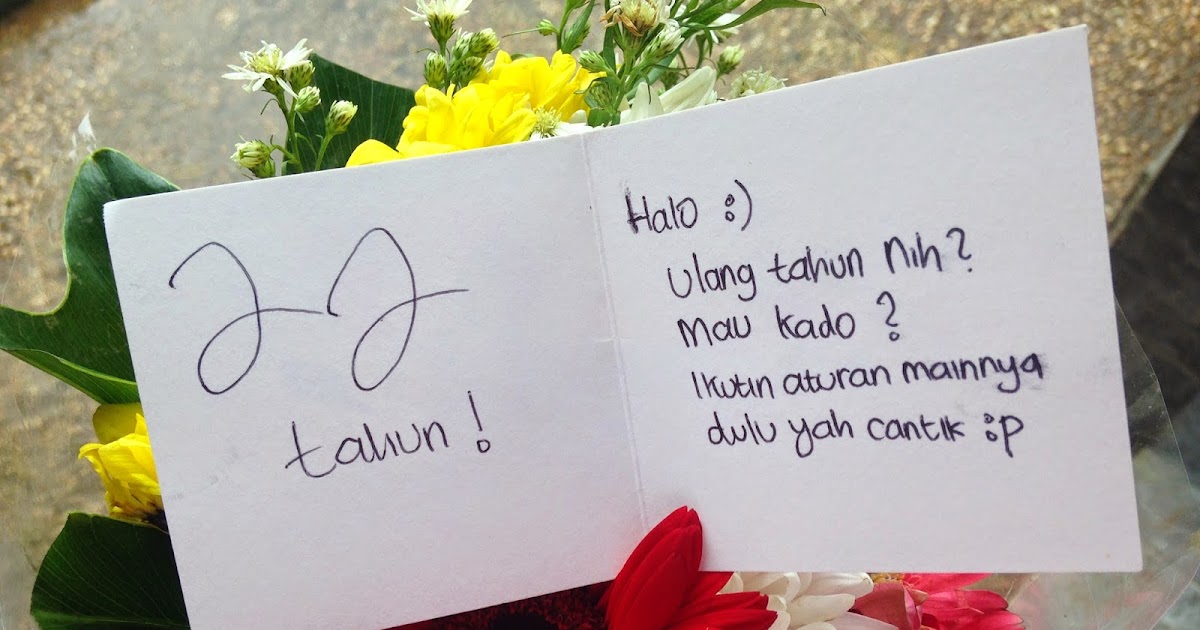 22
tahun!
Halo :)
Ulang tahun nih?
mau kado?
Ikutin aturan mainnya
dulu yah cantik :p